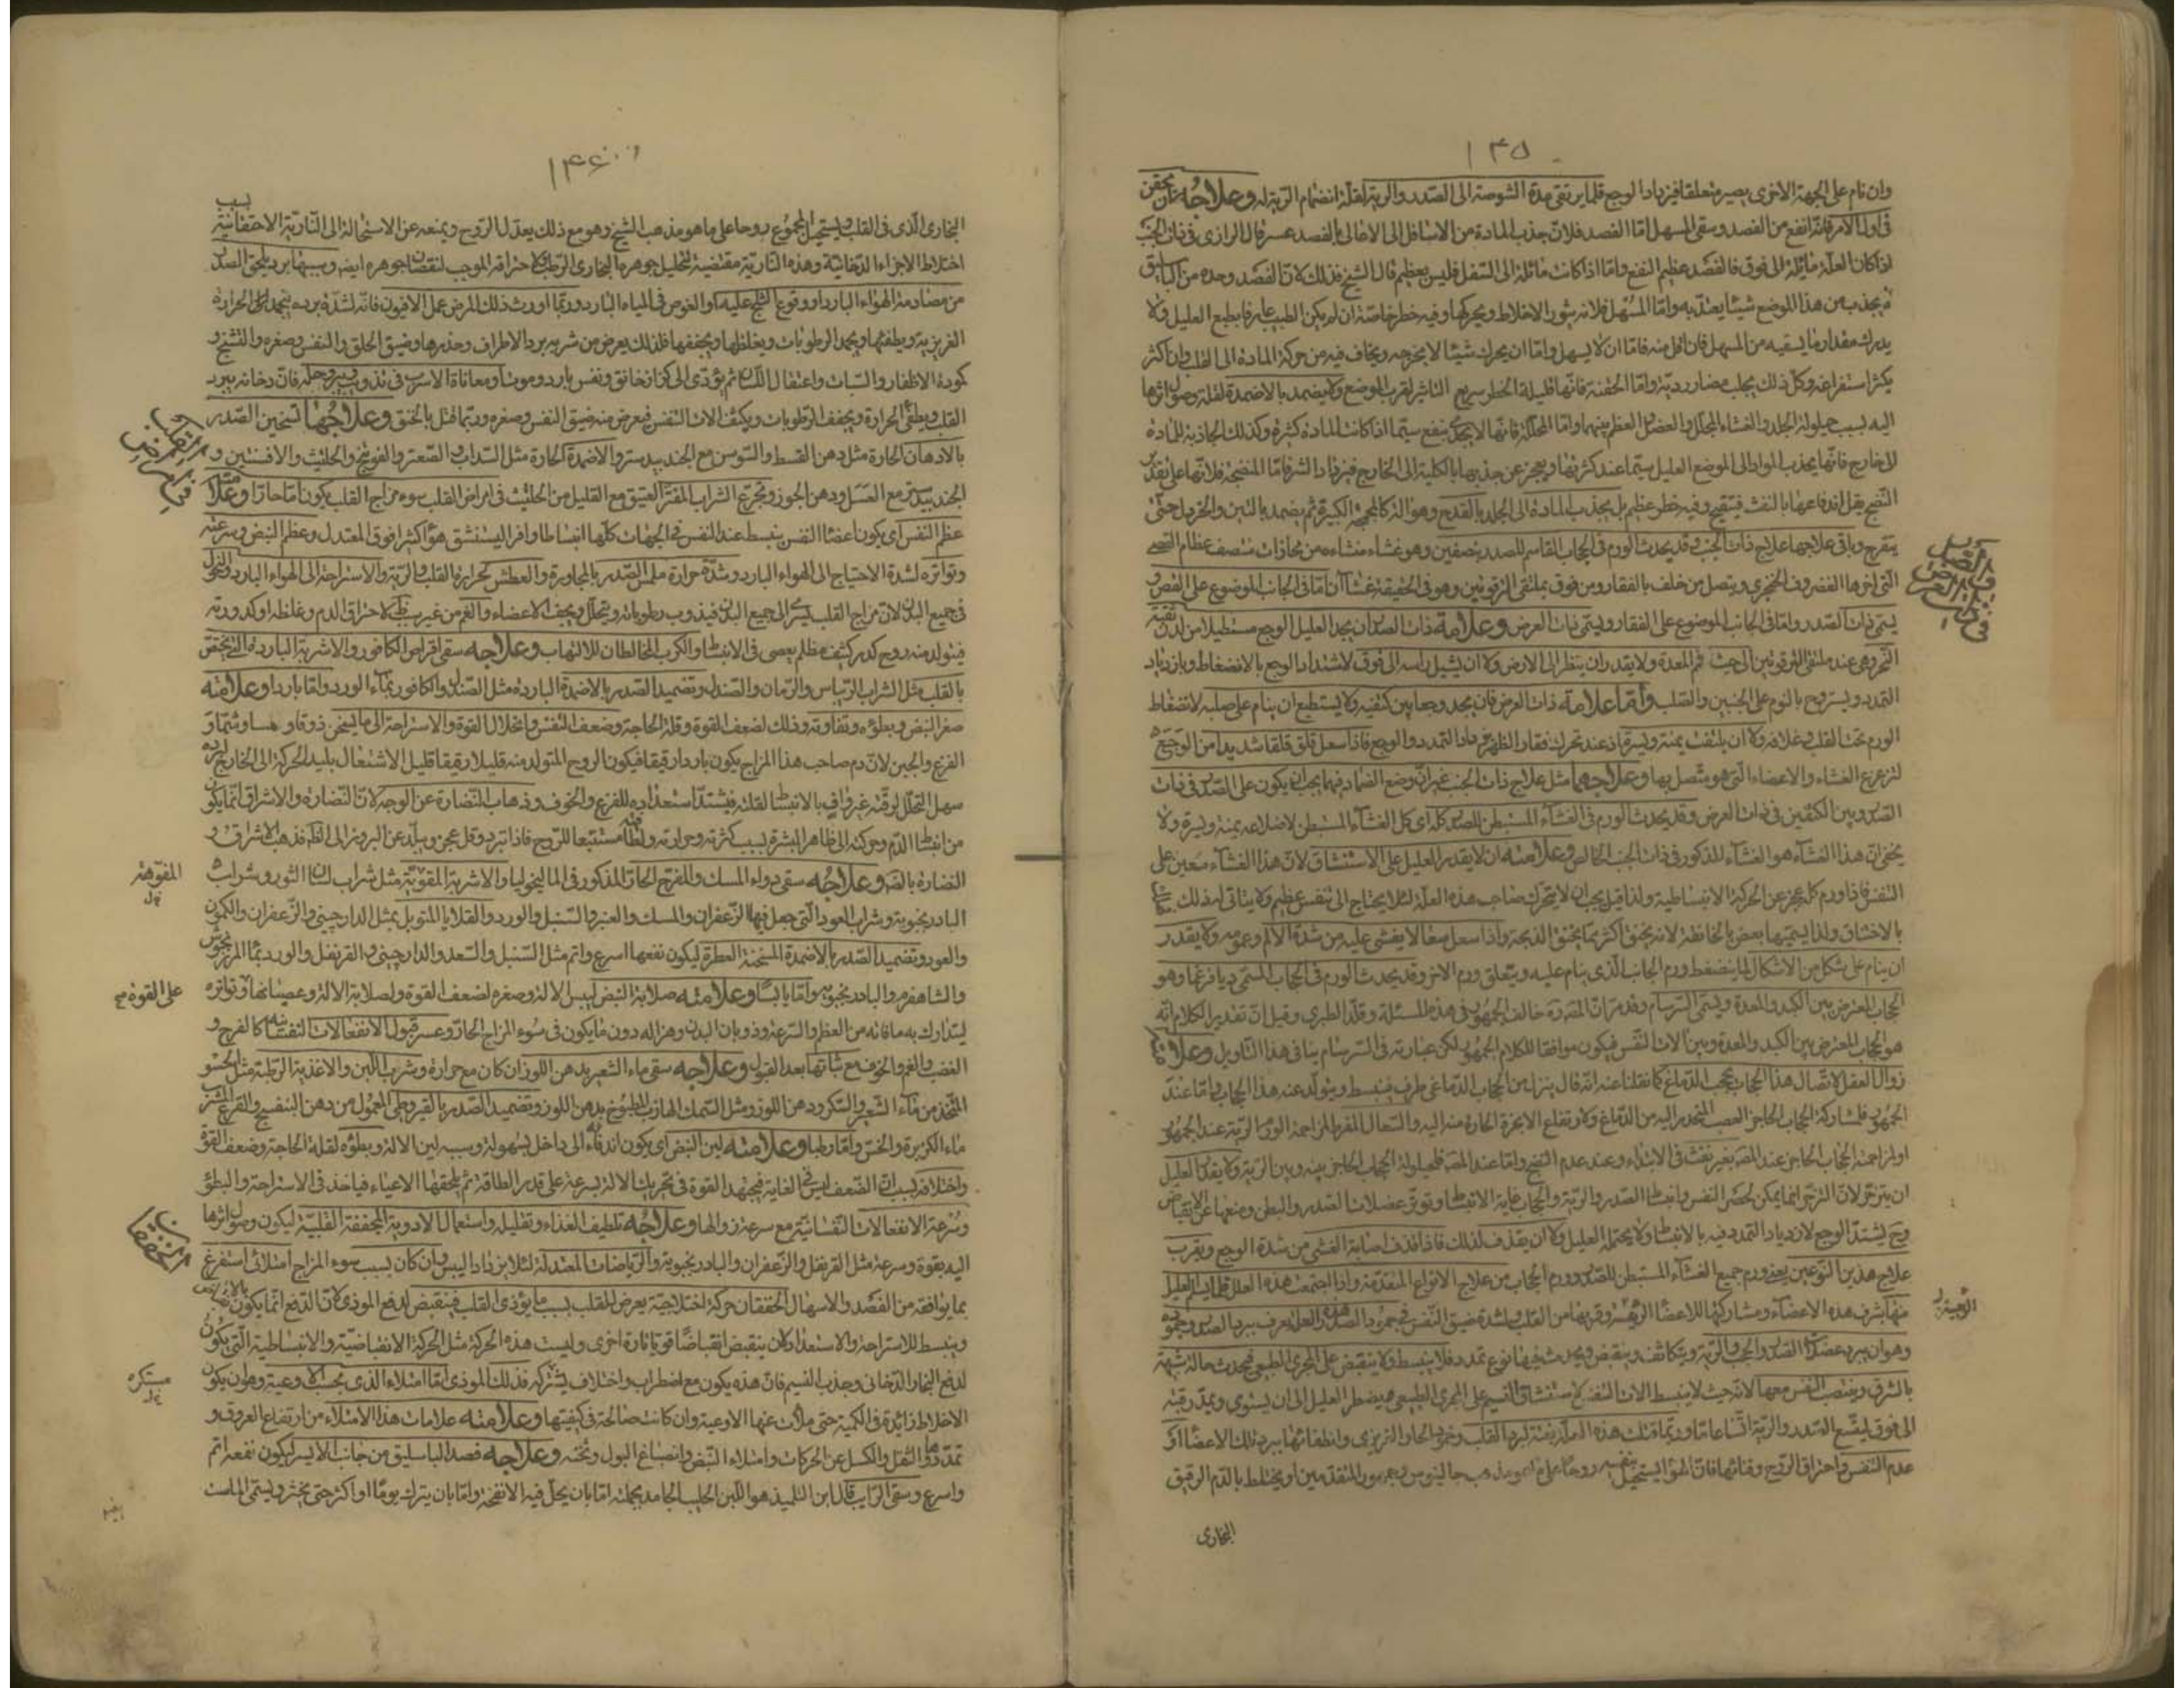 ١٣٥
وان نام على الجهة الاخرى يصير متعلقا فيزداد الوجع قلما يرتقى مدة الشوصة الى الصدر والرية لقلة انضمام الرية له وعلاجه ان يحقن
فى اول الامر فانه انفع من الفصد وسقى المسهل اما الفصد فلان جذب المادة من الاسافل الى الاعالى بالفصد عسر قال الرازى فى ذات الجنب
اذا كان العلة مائلة الى فوق فالفصد عظيم النفع واما اذا كانت مائلة الى السفل فليس بعظيم قال الشيخ فذلك لان الفصد وحده من الباسليق
لا يجذب من هذا الموضع شيئا يعتد به واما المسهل فلانه يثور الاخلاط ويحركها وفيه خطر خاصة ان لم يكن الطبيب عارفا بطبع العليل ولا
يدرك مقدار ما يسقيه من المسهل فان اقل منه فاما ان لا يسهل واما ان يحرك شيئا لا يخرجه ويخاف فيه من حركة المادة الى القلب وان اكثر
يكثر استفراغه وكل ذلك يجلب مضار ردية واما الحقنة فانها قليلة الخطر سريع التاثير لقرب الموضع ولا يضمد بالاضمدة لقلة وصول اثرها
اليه بسبب حيلولة الجلد والغشاء المجلل والعضل والعظم بينهما واما المحللة فانها لا ينفع سيما اذا كانت المادة كثيرة وكذلك الجاذبة للمادة
الى خارج فانها يجذب المواد الى الموضع العليل سيما عند كثرتها ويعجز عن جذبها بالكلية الى الخارج فيزداد الشر فاما المنضجة فلانها على تقدير
النضج يقل اندفاعها بالنفث فيتقيح وفيه خطر عظيم بل يجذب المادة الى الجلد بالقدح وهو آلة كالمحجمة الكبيرة ثم يضمد بالتين والخردل حتى
يتقرح وباقى علاجها علاج ذات الجنب وقد يحدث الورم فى الحجاب القاسم للصدر بنصفين وهو غشاء منشاءه من محاذات منتصف عظام القص
التى اخرها الغضروف الخنجرى ويتصل من خلف بالفقار ومن فوق بملتقى الترقوتين وهو فى الحقيقة غشاآن اما فى الجانب الموضوع على القص و
يسمى ذات الصدر واما فى الجانب الموضوع على الفقار ويسمى ذات العرض وعلامة ذات الصدر ان يجد العليل الوجع مستطيلا من لدن ثغرة
النحر وهى عند ملتقى الترقوتين الى حيث فم المعدة ولا يقدر ان ينظر الى الارض ولا ان يشيل راسه الى فوق لاشتداد الوجع بالانضغاط وبازدياد
التمدد ويستريح بالنوم على الجنبين والصلب واما علامة ذات العرض فان يجد وجعا بين كتفيه ولا يستطيع ان ينام على صلبه لانضغاط
الورم تحت القلب وغلافه ولا ان يلتفت يمنة ويسرة اذ عند تحرك فقار الظهر يزداد التمدد والوجع فاذا سعل قلق قلقا شديدا من الوجع
لتزعزع الغشاء والاعضاء التى هو متصل بها وعلاجهما مثل علاج ذات الجنب غير ان وضع الضماد فيهما يجب ان يكون على الصدر فى ذات
الصدر وبين الكتفين فى ذات العرض وقد يحدث الورم فى الغشاء المستبطن للصدر كله اى كل الغشاء المستبطن لاضلاعه يمنة ويسرة ولا
يخفى ان هذا الغشاء هو الغشاء المذكور فى ذات الجنب الخالص وعلامته ان لا يقدر العليل على الاستنشاق لان هذا الغشاء معين على
التنفس فاذا ورم كله عجز عن الحركة الانبساطية ولذا قيل يجب ان لا يتحرك صاحب هذه العلة لئلا يحتاج الى تنفس عظيم ولا يتاتى له ذلك
بالاختناق ولذا يسميها بعض بالخانقة لانه يخنق اكثر مما يخنق الذبحة واذا سعل سعالا يغشى عليه من شدة الالم وعمومه ولا يقدر
ان ينام على شكل من الاشكال لما ينضغط ورم الجانب الذى ينام عليه ويتعلق ورم الاخر وقد يحدث الورم فى الحجاب المسمى ديافرغما وهو
الحجاب المعترض بين الكبد والمعدة ويسمى البرسام وقد مر ان المصنف خالف الجمهور فى هذه المسئلة وقلد الطبرى وقيل ان تقدير الكلام انه
هو الحجاب المعترض بين الكبد والمعدة وبين آلات التنفس فيكون موافقا لكلام الجمهور لكن عبارته فى السرسام ينافى هذا التاويل وعلامته
زوال العقل لاتصال هذا الحجاب بحجب الدماغ كما نقلنا عنه انه قال ينزل من حجاب الدماغ طرف فينبسط ويتولد عنه هذا الحجاب واما عند
الجمهور فلمشاركة الحجاب الحاجز العصب المنحدر اليه من الدماغ ولارتفاع الابخرة الحارة منه اليه والسعال المفرط لمزاحمة الورم الرية عند الجمهور
او لمزاحمة الحجاب الحاجز عند المصنف بغير نفث فى الابتداء وعند عدم النضج واما عند المصنف فلحيلولة الحجاب الحاجز بينه وبين الرية ولا يقدر العليل
ان يتزحر لان التزحر انما يمكن بحصر النفس وانبساط الصدر والرية والحجاب غاية الانبساط وتوتر عضلات الصدر والبطن ومنعها عن الانقباض
وح يشتد الوجع لازدياد التمدد فيه بالانبساط ولا يحتمله العليل ولا ان يقذف لذلك فاذا قذف اصابه الغشى من شدة الوجع ويقرب
علاج هذين النوعين يعنى ورم جميع الغشاء المستبطن للصدر وورم الحجاب من علاج الانواع المتقدمة واذا اجتمعت هذه العلل قلما يسلم العليل
منها لشرف هذه الاعضاء ومشاركتها للاعضاء الرئيسة وقربها من القلب ولشدة ضيق النفس فى جمود الصدر هذه العلة يعرف ببرد الصدر وجموده
وهو ان يبرد عضلات الصدر والحجب والرية ويتكاثف وينقبض ويحدث فيها نوع تمدد فلا ينبسط ولا ينقبض على المجرى الطبيعى فيحدث حالة شبيهة
بالشرق وينتصب النفس معها لانه ح لا ينبسط آلات التنفس لاستنشاق النسيم على المجرى الطبيعى فيضطر العليل الى ان يستوى ويمد رقبته
الى فوق ليتسع الصدر والرية اتساعا ما وربما قتلت هذه العلة بغتة لبرد القلب وخمود الحار الغريزى وانطفائها ببرد تلك الاعضاء او
عدم التنفس واحتراق الروح وفنائها فان الهواء المستحيل بنفسه روحا على ما هو مذهب جالينوس وجمهور المتقدمين او يختلط بالدم الرقيق
البخارى
فى ذات الصدر
وذات العرض
الرئيسة
١٤٦
البخارى الذى فى القلب ويستحيل المجموع روحا على ما هو مذهب الشيخ وهو مع ذلك يعدل الروح ويمنعه عن الاستحالة الى النارية الاحتقانية بسبب
اختلاط الاجزاء الدخانية وهذه النارية مقتضية لتحليل جوهرها البخارى الرطب ولاحتراقه الموجب لنقصان جوهره ايضا وسببها برد يلحق الصدر
من مصادمة الهواء البارد او وقوع الثلج عليه او الغوص فى المياه الباردة وربما اورث ذلك المرض عمل الافيون فانه لشدة برده يجمد الحرارة
الغريزية ويطفئها ويجمد الرطوبات ويغلظها ويجففها فلذلك يعرض من شربه برد الاطراف وخدرها وضيق الحلق والنفس وصغره والتشنج و
كمودة الاظفار والسبات واعتقال اللسان ثم يؤدى الى كزاز خانق ونفس بارد وموت ومعاناة الاسرب فى تذويبه وحله فان دخانه يبرد
القلب ويطفئ الحرارة ويجفف الرطوبات ويكثف آلات التنفس فيعرض منه ضيق النفس وصغره وربما قتل بالخنق وعلاجها تسخين الصدر
بالادهان الحارة مثل دهن القسط والسوسن مع الجندبيدستر والاضمدة الحارة مثل السداب والصعتر والفوتنج والحلتيث والافسنتين و
الجندبيدستر مع العسل ودهن الجوز وتجرع الشراب العتيق مع القليل من الحلتيث فى امراض القلب سوء مزاج القلب يكون اما حارا وعلامته
عظم النفس اى يكون اعضاء النفس ينبسط عند النفس فى الجهات كلها انبساطا وافرا ليستنشق هواء كثيرا فوق المعتدل وعظم النبض وسرعته
وتواتره لشدة الاحتياج الى الهواء البارد وشدة حرارة ملمس الصدر بالمجاورة والعطش لحرارة القلب والرية والاستراحة الى الهواء البارد والنحول
فى جميع البدن لان مزاج القلب يسرى الى جميع البدن فيذوب رطوباته ويتحلل ويجف الاعضاء والغم من غير سبب لاحتراق الدم وغلظه او كدورته
فيتولد منه روح كدر كثيف مظلم يعصى فى الانبساط والكرب المخالطان للالتهاب وعلاجه سقى اقراص الكافور والاشربة الباردة التى تختص
بالقلب مثل الشراب الريباس والرمان والصندل وتضميد الصدر بالاضمدة الباردة مثل الصندل والكافور بماء الورد واما باردا وعلامته
صغر النبض وبطؤه وتفاوته وذلك لضعف القوة وقلة الحاجة وضعف النفس وانحلال القوة والاستراحة الى ما يسخن ذوقا ولمسا وشما و
الفزع والجبن لان دم صاحب هذا المزاج يكون باردا رقيقا فيكون الروح المتولد منه قليلا رقيقا قليل الاشتعال بليد الحركة الى الخارج لبرده
سهل التحلل لرقته غير واف بالانبساط لقلته فيشتد استعداده للفزع والخوف وذهاب النضارة عن الوجه لان النضارة والاشراق انما يكون
من انبساط الدم وحركته الى ظاهر البشرة بسبب كثرته وحرارته ولطافته مستتبعا للروح فاذا تبرد وقل عجز وتبلد عن البروز الى الظاهر فذهب الاشراق و
النضارة بالضرورة وعلاجه سقى دواء المسك والمفرح الحار المذكور فى الماليخوليا والاشربة المقوية مثل شراب لسان الثور وشراب
البادرنجبوية وشراب العود التى جعل فيها الزعفران والمسك والعنبر والسنبل والورد والقلايا المتوبل بمثل الدارچينى والزعفران والكمون
والعود وتضميد الصدر بالاضمدة المسخنة العطرة ليكون نفعها اسرع واتم مثل السنبل والسعد والدارچينى والقرنفل والورد بماء المرزنجوش
والشاهفرم والبادرنجبوية واما يابسا وعلامته صلابة النبض ليبس الآلة وصغره لضعف القوة ولصلابة الآلة وعصيانها وتواتره
ليتدارك به ما فاته من العظم والسرعة وذوبان البدن وهزاله دون ما يكون فى سوء المزاج الحار وعسر قبول الانفعالات النفسانية كالفرح و
الغضب والغم والخوف مع ثباتها بعد القبول وعلاجه سقى ماء الشعير بدهن اللوز ان كان مع حرارة وشرب اللبن والاغذية الرطبة مثل الحسو
المتخذ من ماء الشعير والسكر ودهن اللوز ومثل السمك الهازبى المطبوخ بدهن اللوز وتضميد الصدر بالقيروطى المعمول من دهن البنفسج والقرع
ماء الكزبرة والخس واما رطبا وعلامته لين النبض اى يكون اندفاعه الى داخل بسهولة وسببه لين الآلة وبطؤه لقلة الحاجة وضعف القوة
واختلافه لسبب ان الضعف ليس فى الغاية فيجتهد القوة فى تحريك الآلة بسرعة على قدر الطاقة ثم يلحقها الاعياء فياخذ فى الاستراحة والبطؤ
وسرعة الانفعالات النفسانية مع سرعة زوالها وعلاجه تلطيف الغذاء وتقليله واستعمال الادوية المجففة القلبية ليكون وصول اثرها
اليه بقوة وسرعة مثل القرنفل والزعفران والبادرنجبوية والرياضات المعتدلة لئلا يزداد اليبس وان كان بسبب سوء المزاج امتلائى استفرغ
بما يوافقه من الفصد والاسهال الخفقان حركة اختلاجية يعرض للقلب بسبب ما يؤذى القلب فينقبض لدفع الموذى لان الدفع انما يكون بالانقباض
وينبسط للاستراحة والاستعداد لان ينقبض انقباضا قويا تارة اخرى وليست هذه الحركة مثل الحركة الانقباضية والانبساطية التى يكون
لدفع البخار الدخانى وجذب النسيم فان هذه يكون مع اضطراب واختلاف يشتركه فذلك الموذى اما امتلاء الذى بحسب الاوعية وهو ان يكون
الاخلاط زايدة فى الكمية حتى ملأت عنها الاوعية وان كانت صالحة فى كيفيتها وعلامته علامات هذا الامتلاء من ارتفاع العروق و
تمددها والثقل والكسل عن الحركات وامتلاء النبض وانصباغ البول وثخنه وعلاجه فصد الباسليق من جانب الايسر ليكون نفعه اتم
واسرع وسقى الرايب قال ابن التلميذ هو اللبن الحليب الجامد بجملته اما بان يحل فيه الانفحة واما بان يترك يوما او اكثر حتى يخثر ويسمى الماست
فى امراض القلب
المفوهة
على القوة
الخفقان
مستكره